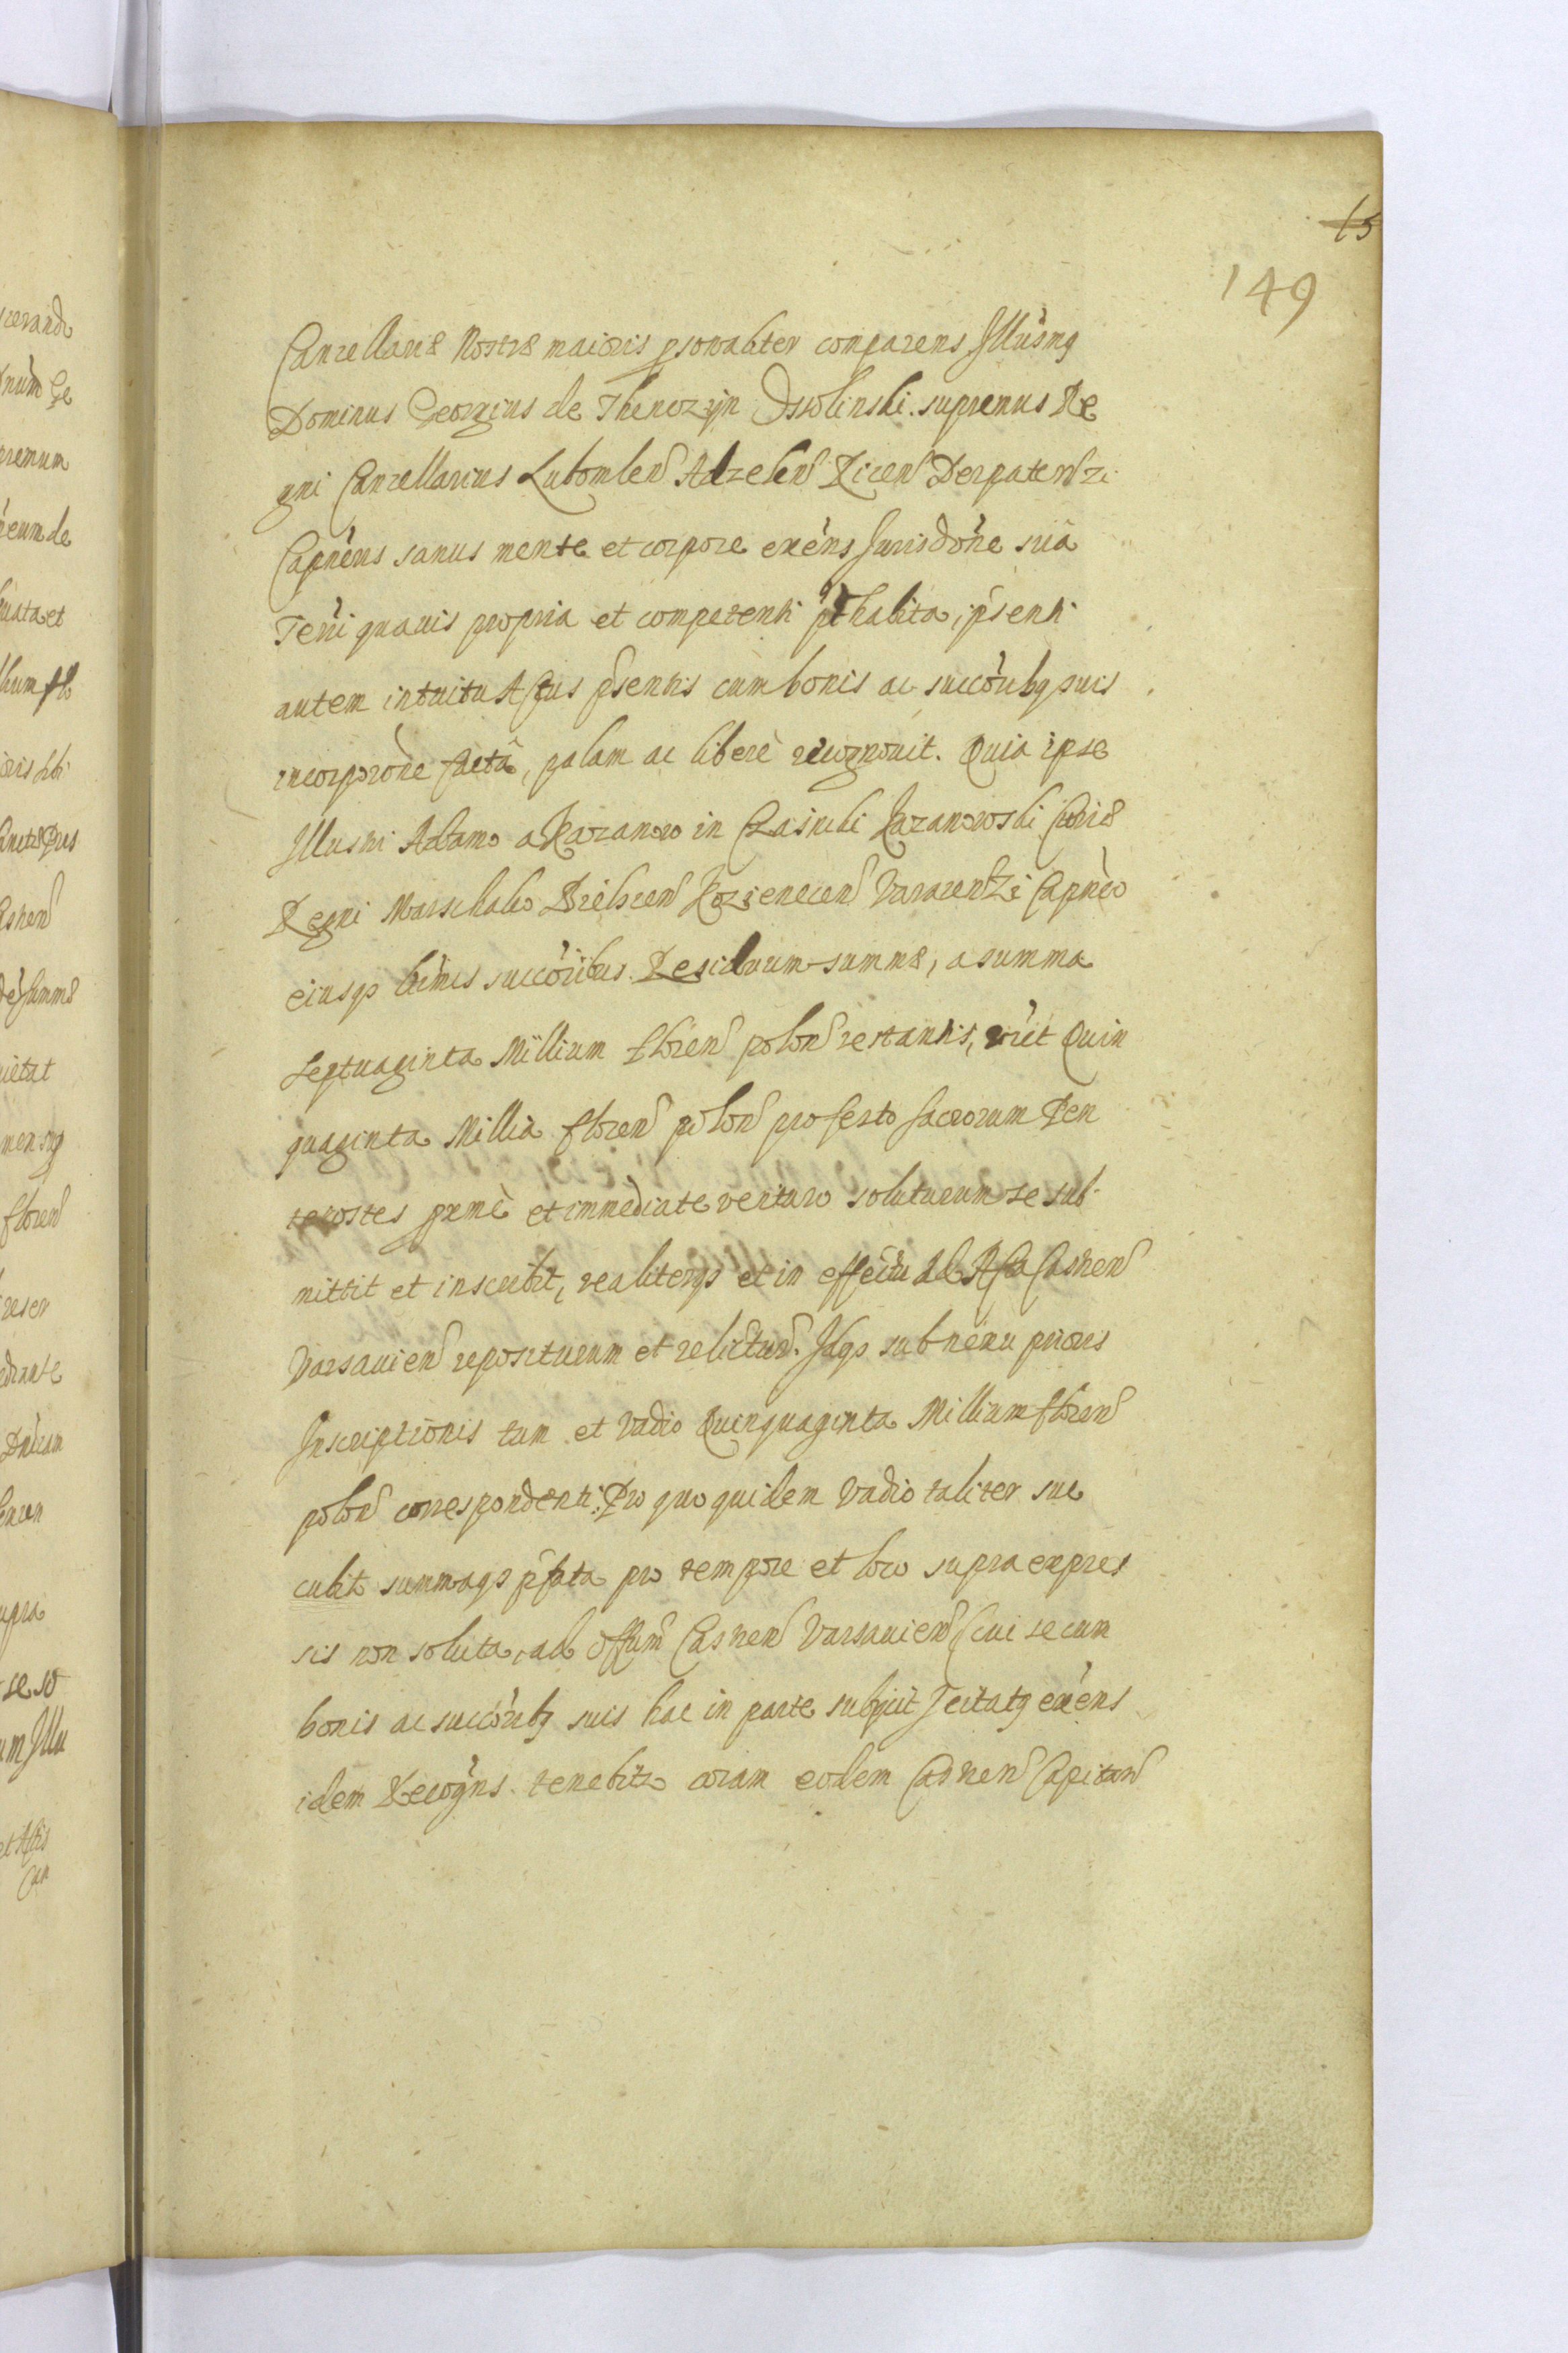 15
149
Cancellariæ Nostræ maioris psonaliter comparens Illusmq
Dominus Georgius de Thenczijn Ossolinski supremus Re
gni Cancellarius Lubomlen Adzelen Ricen Derpaten Zc
Capneus sanus mente et corpore exens Jurisdone suâ
Terri quauis propria et competenti habita, psenti
autem intuitu Actus psentis cum bonis ac succoribq suis
incorporone factâ, palam ac liberè recognouit. Quia ipse
Illustri Adamo a Kazanow in Kazanowski Curiæ
Regni Marschalco Bielscen Kozienecen Capneo
eiusq ltimis succoribus. Residuum summæ, a summa
Septuaginta Millium floren polon restantis, vidt Quin
quaginta Millia floren polon pro festo sacrorum Pen
tecostes pxmè et immediate venturo soluturum se sub
mittit et inscribit, realiterqz et in effectu ad Acta Castren
Varsauien repositurum et relicturu. Idqz sub nexu prioris
Inscriptionis tum et vadio Quinquaginta Millium floren
polon correspondenti. Pro quo quidem vadio taliter suc
cubit summaqz pfata pro tempore et loco supra expres
sis non soluta, ad Offum Castren Varsauien cui se cum
bonis ac succoribq suis hac in parte subijcit exens
idem Recogns tenebitr coram eodem Castren Capitan